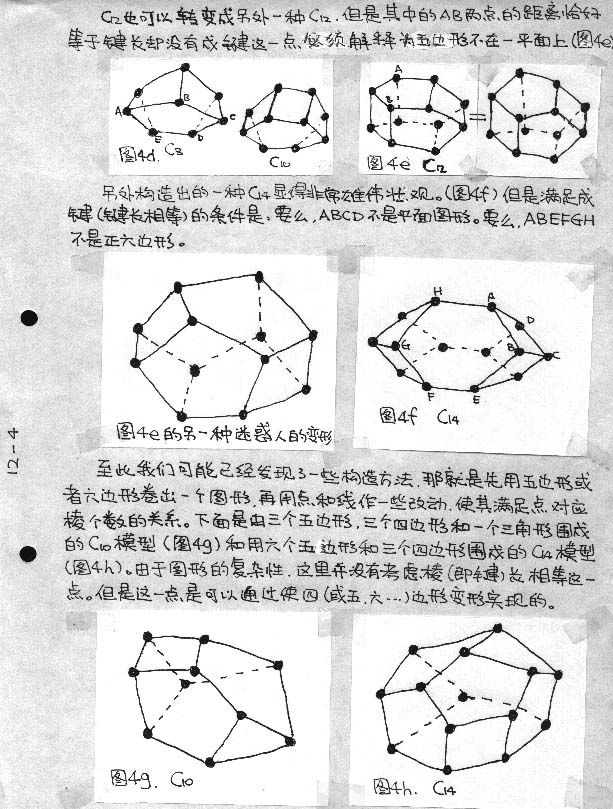 C12也可以转变成另外一种C12.但是其中的AB两点的距离恰好
等于键长却没有成键这一点,必须解释为五边形不在一平面上(图4e)
A
B
C
E
D
图4d. C8
C10
A
B
图4e C12
=
另外构造出的一种C14显得非常雄伟壮观。(图4f)但是满足成
键(键长相等)的条件是:要么,ABCD不是平面图形。要么,ABEFGH
不是正六边形。
图4e的另一种迷惑人的变形
H
A
D
G
B
C
F
E
图4f C14
12-4
至此我们可能已经发现了一些构造方法,那就是先用五边形或
者六边形卷出一个图形,再用点和线作一些改动,使其满足点对应
棱个数的关系。下面是由三个五边形,三个四边形和一个三角形围成
的C10模型(图4g)和用六个五边形和三个四边形围成的C14模型
(图4h)。由于图形的复杂性,这里并没有考虑棱(即键)长相等这一
点。但是这一点是可以通过使四(或五.六…)边形变形实现的。
图4g. C10
图4h. C14